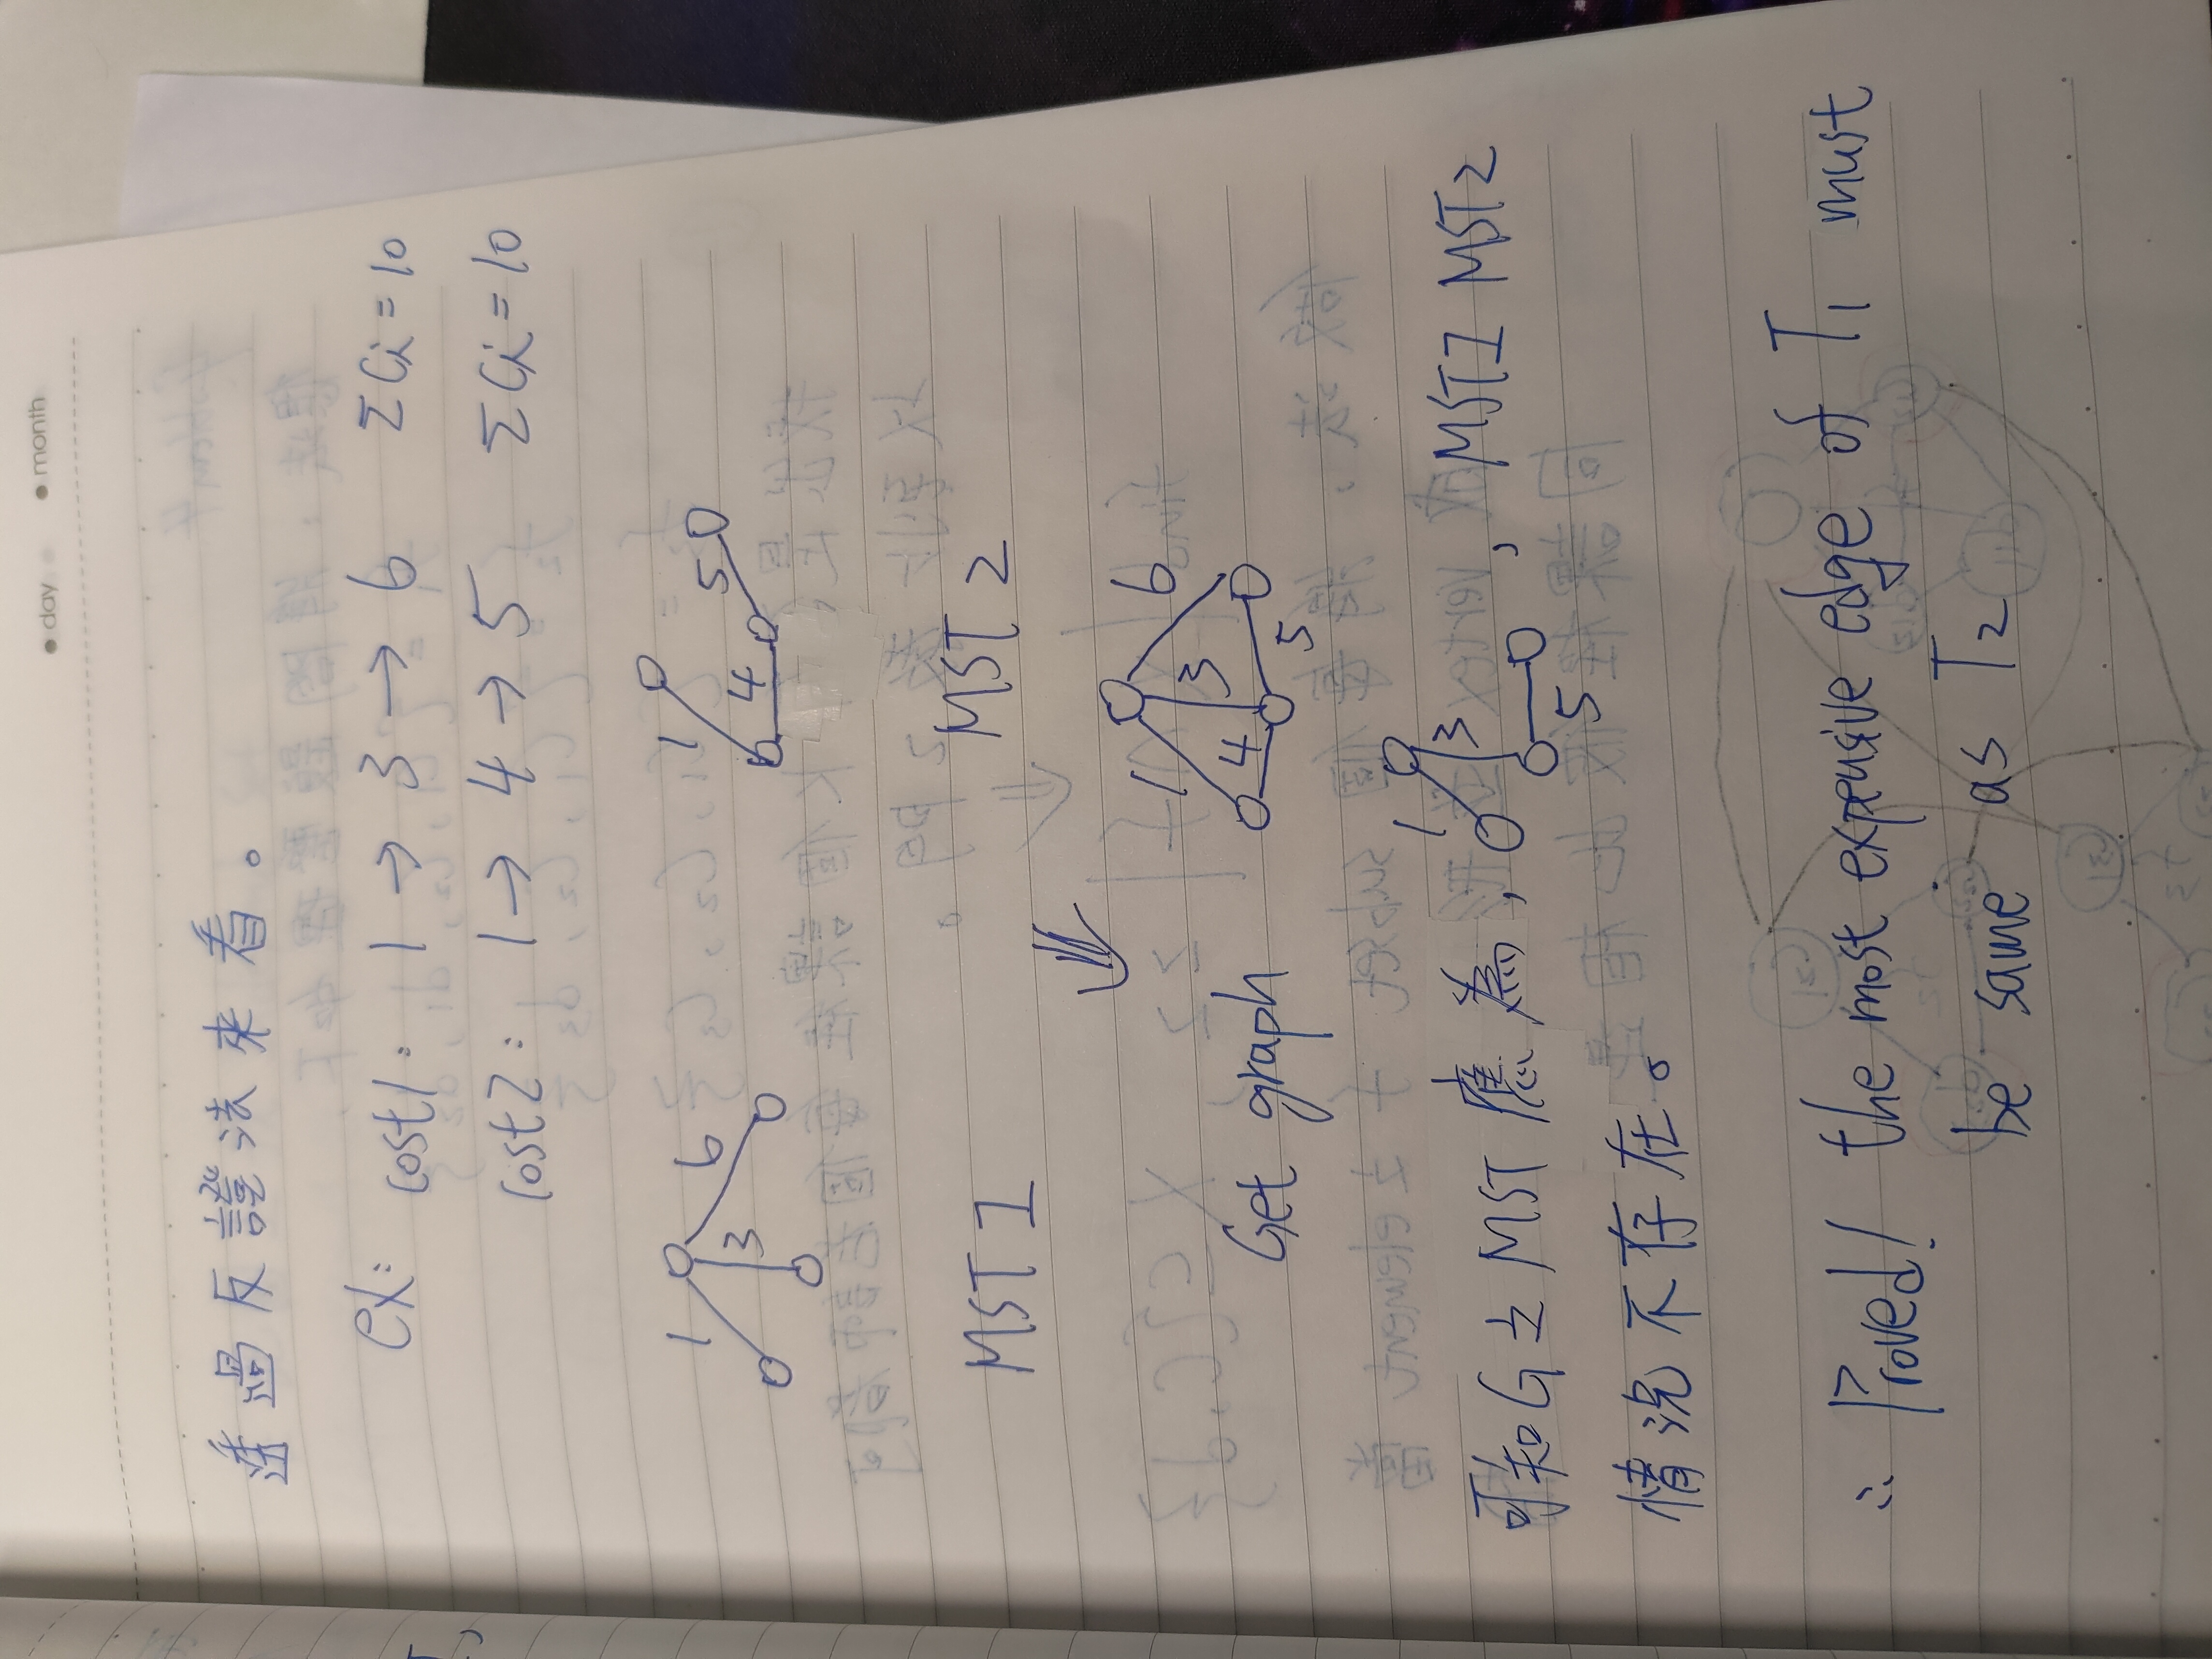 day month
透過反證法來看。
ex: cost1: 1 → 3 → 6 ΣCi = 10
cost2: 1 → 4 → 5 ΣCi = 10
1 3 6 1 4 5
MST 1 MST 2
⇓
Get graph 1 4 3 6 5
可知G之MST應為, 1 3 5 , MST1 MST2
情況不存在。
∴ Proved! the most expensive edge of T1 must
be same as T2